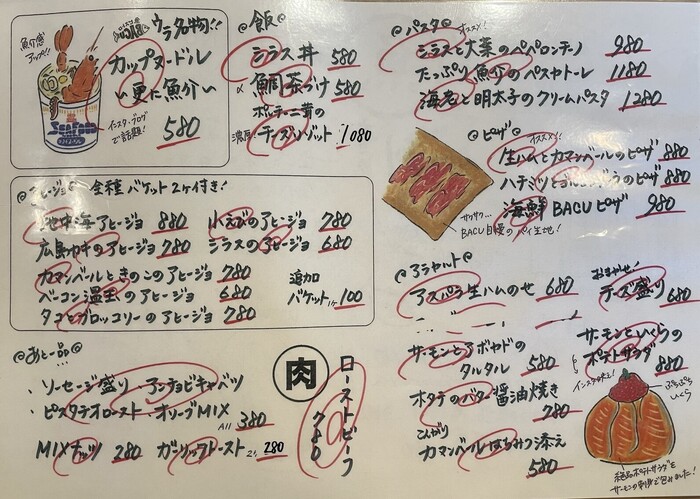 魚介感
アップ!!
ウラ名物!!
カップヌードル
〜更に魚介〜
580
インスタ・ブログ
で話題!
飯
シラス丼 580
鯛茶づけ 580
ポルチーニ茸の
濃厚 チーズリゾット 1080
パスタ
オススメ!
シラスと大葉のペペロンチーノ 980
たっぷり魚介のペスカトーレ 1180
海老と明太子のクリームパスタ 1280
ピザ
オススメ!!
生ハムとカマンベールのピザ 880
ハチミツとゴルゴンゾーラのピザ 880
海鮮BACUピザ 980
サクサク…
BACU自慢のパイ生地!
アヒージョ 全種バケット2ケ付き!
地中海アヒージョ 880
小えびのアヒージョ 780
広島カキのアヒージョ 780
シラスのアヒージョ 680
カマンベールときのこのアヒージョ 780
ベーコン温玉のアヒージョ 680
タコとブロッコリーのアヒージョ 780
追加
バケット 100
アラカルト
アスパラ生ハムのせ 680
おまかせ!
チーズ盛り 680
サーモンとアボカドの
タルタル 580
ホタテのバター醤油焼き
780
こんがり
カマンベールはちみつ添え
580
サーモンといくらの
ポテトサラダ
880
インスタ映え!
ぷちぷち
いくら
絶品ポテトサラダを
サーモンの刺身で包みました!
あと一品
・ソーセージ盛り ・アンチョビキャベツ
・ピスタチオロースト ・オリーブMIX
All 380
MIXナッツ 280
ガーリックトースト 280
肉
ローストビーフ
780